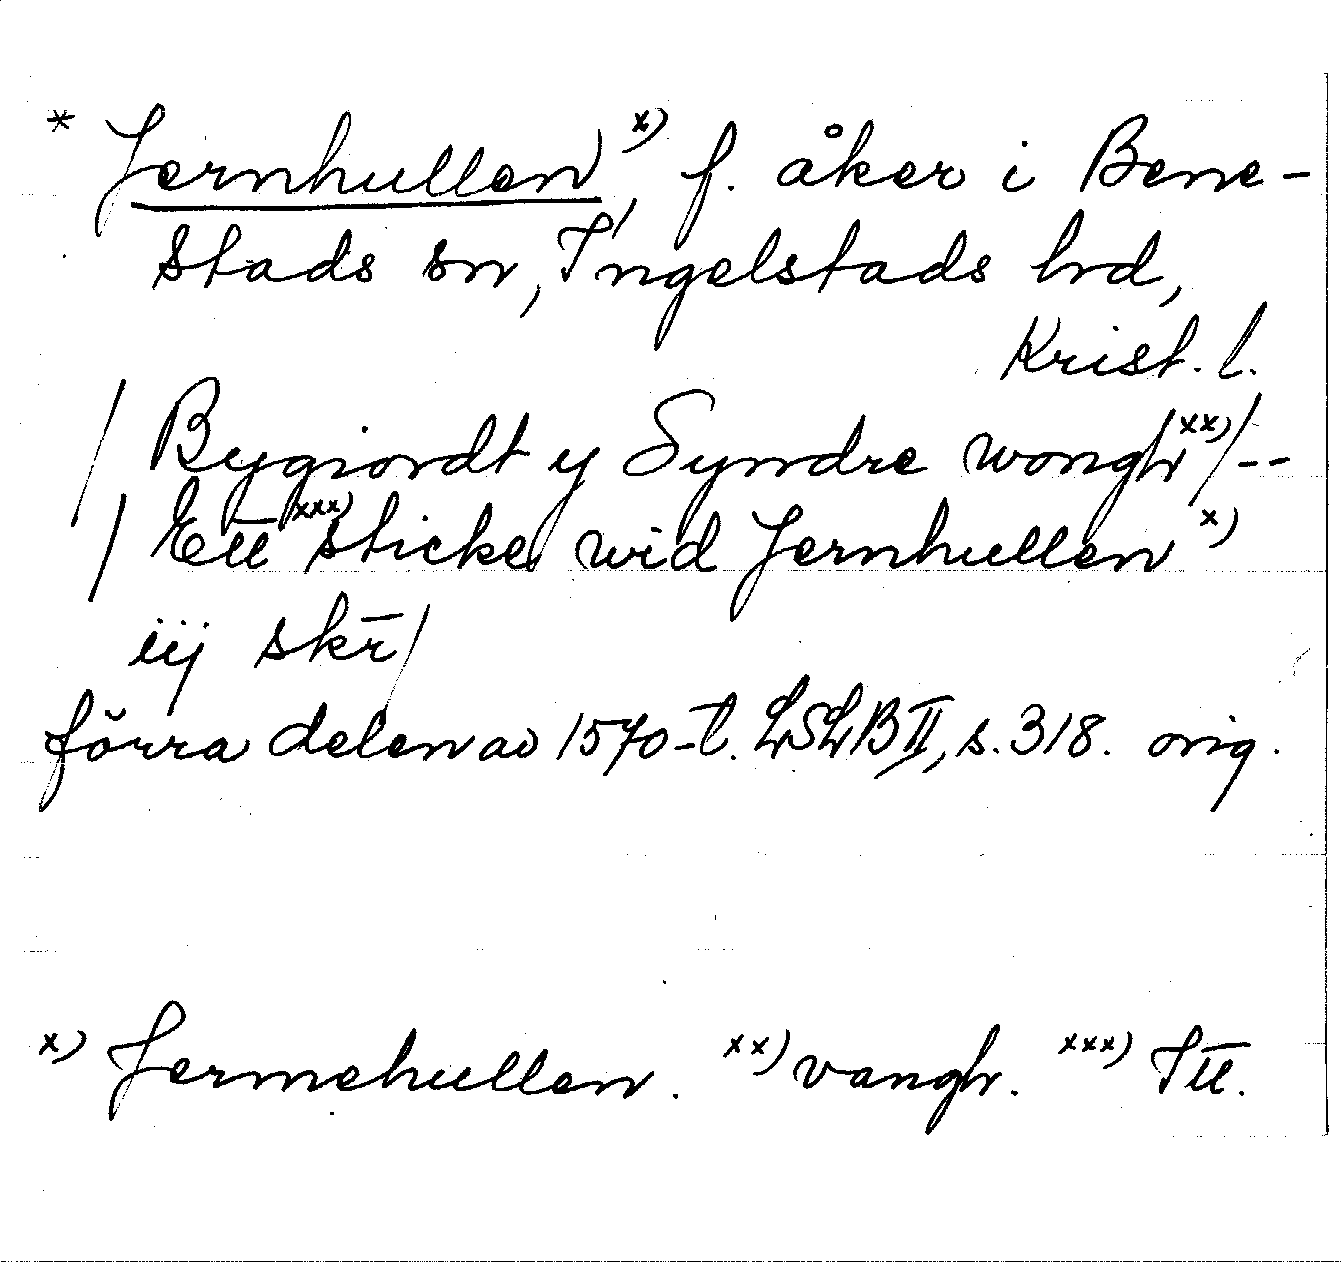 * Jernhullen x), f. åker i Bene-
stads sn, Ingelstads hrd,
Krist. l.
/ Bygiordt y Syndre wongh xx) / --
/ Ett xxx) sticke wid Jernhullen x)
iij skr̄ /
förra delen av 1570-t. LSLB II, s. 318. orig.
x) Jermehullen. xx) vangh. xxx) Itt.